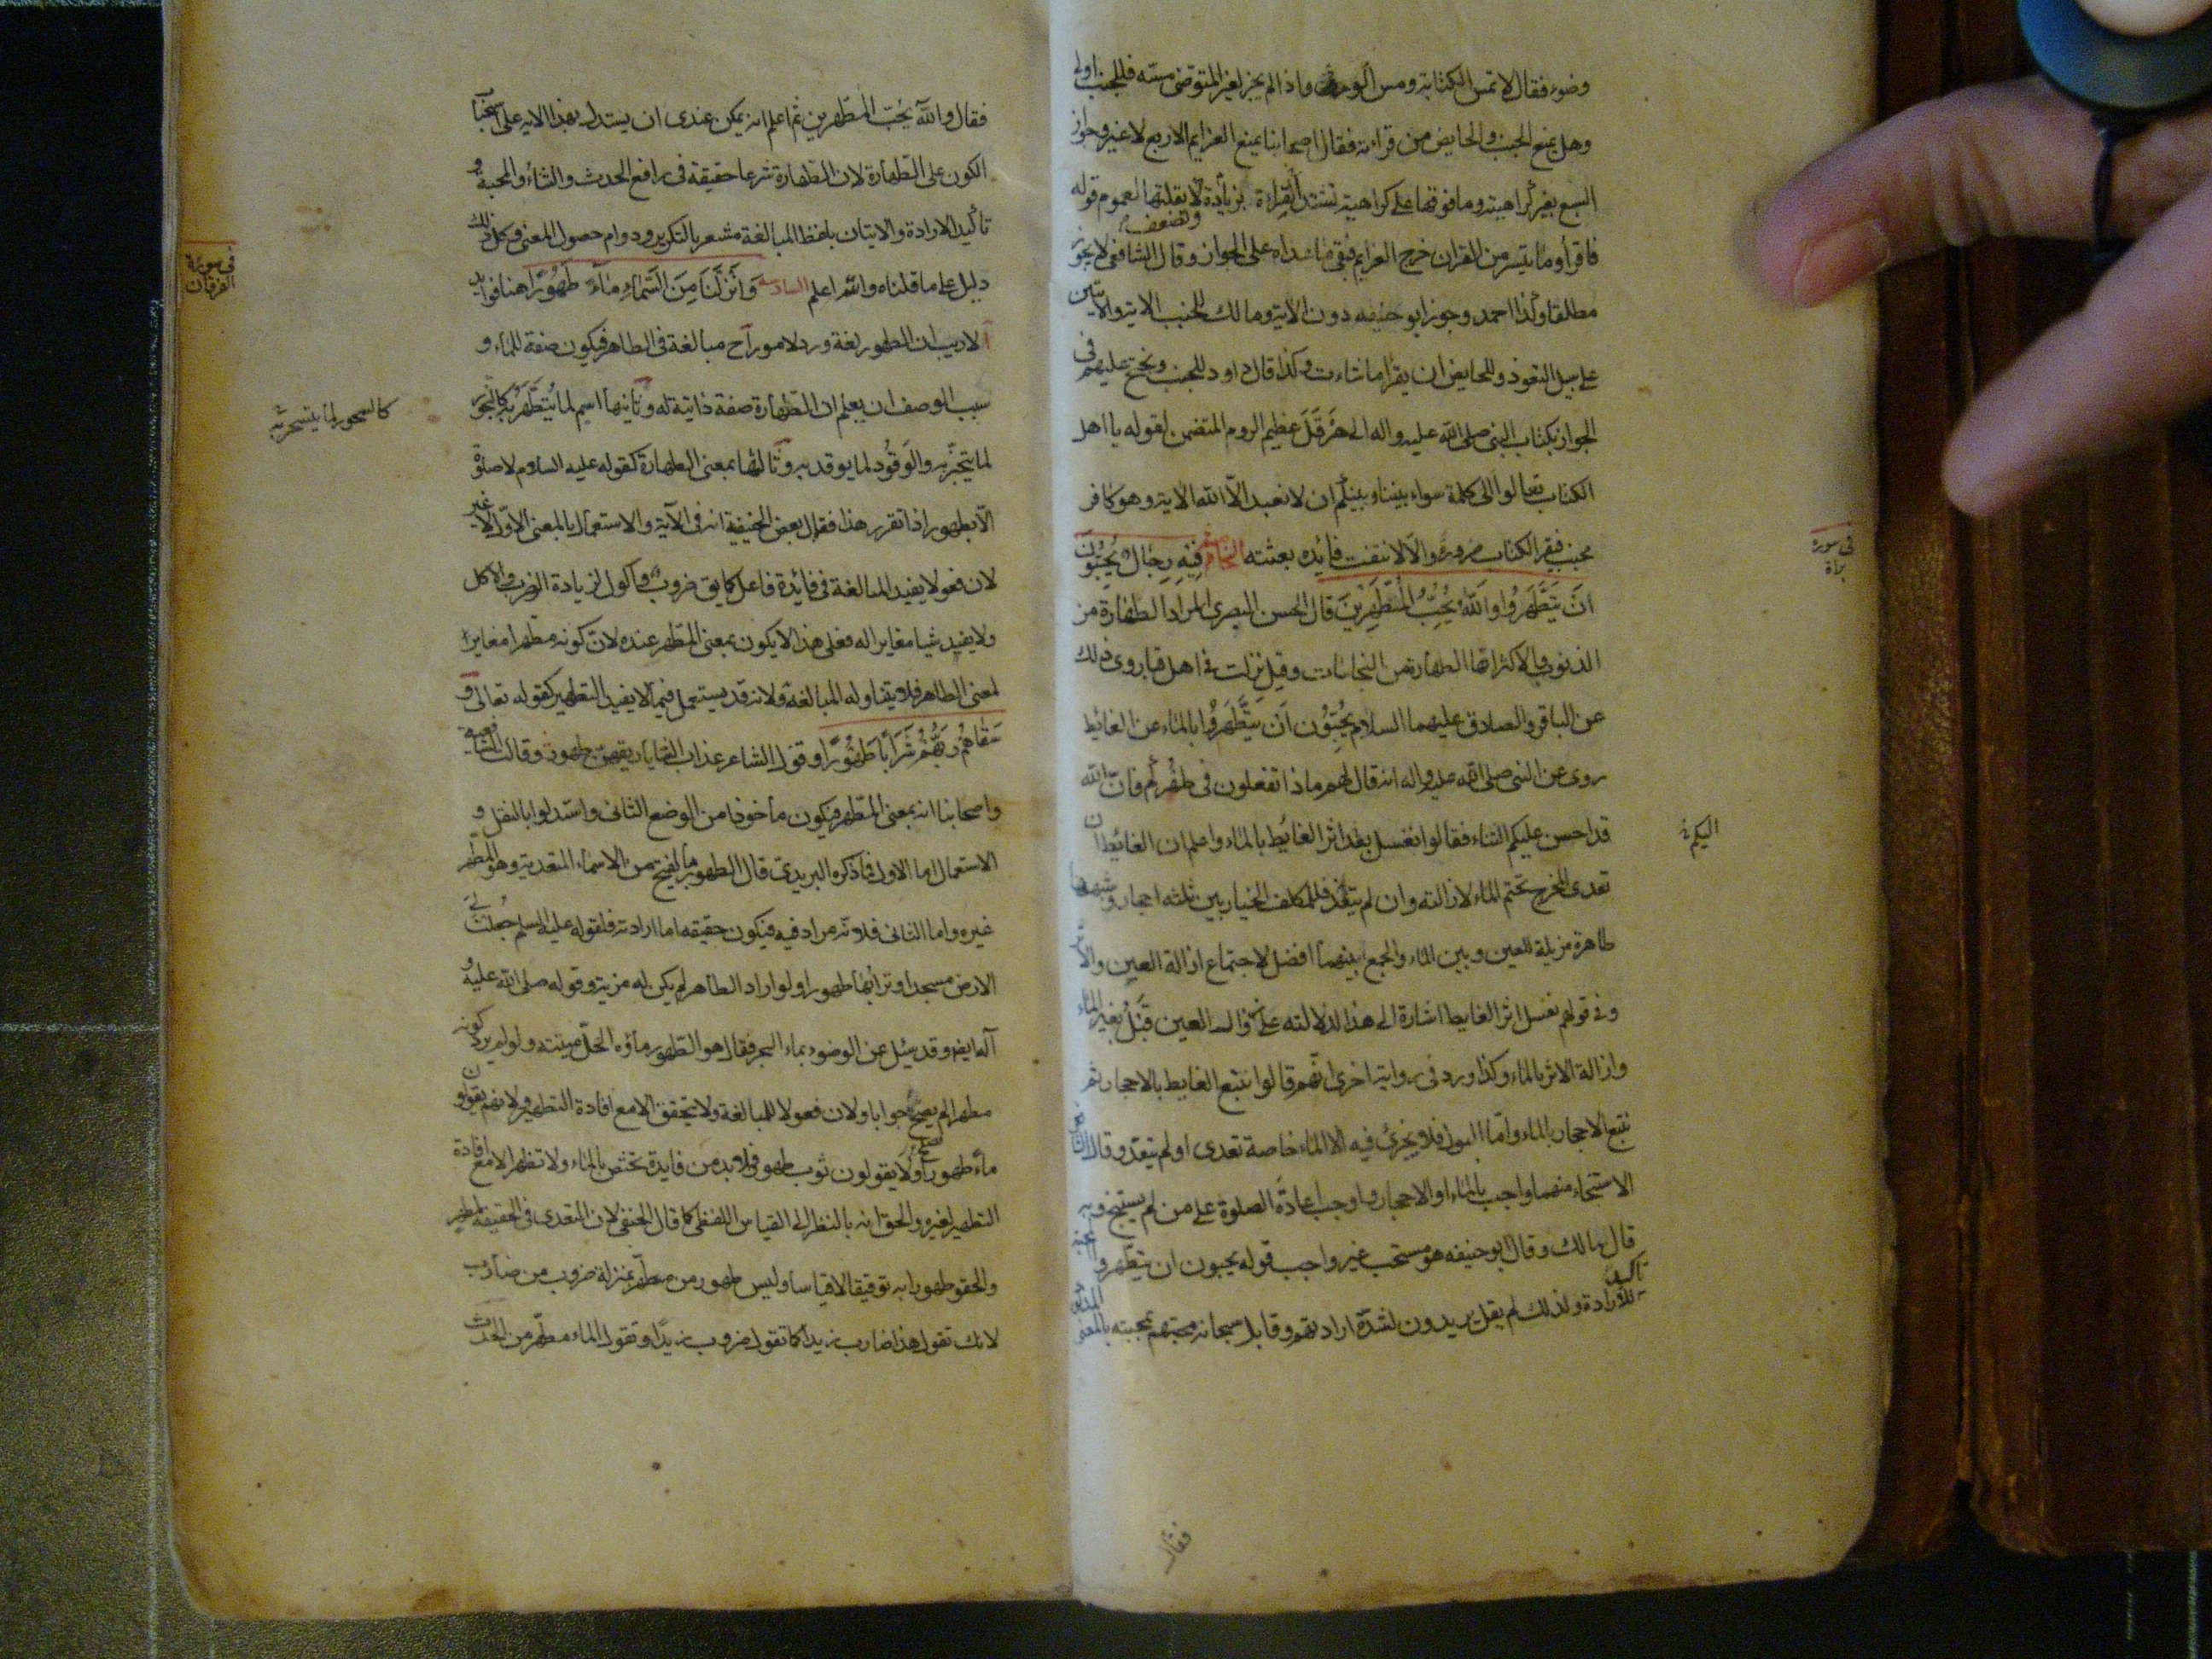 وضوء فقال لا تمس الكتابة ومس الورق واذا لم يجز لغير المتوضى مسه فللجنب اولى
وهل يمنع الجنب والحايض من قراءته فقال اصحابنا يمنع العزايم الاربع لا غير وجواز
السبع بغير كراهية وما فوقها على كراهية تشتد القراءة بزيادة لا بقلتها لعموم قوله
وتضعف
فاقرأوا ما تيسر من القران خرج العزايم فبقى ما عداه على الجواز وقال الشافعى لا يجوز
مطلقا وكذا احمد وجوز ابو حنيفه دون الاية ومالك للجنب الاية والآيتين
على سبيل التعوذ وللحايض ان يقرأ ما شاءت وكذا قال داود للجنب ويحتج عليهم فى
الجواز بكتاب النبى صلى الله عليه واله الى هرقل عظيم الروم المتضمن لقوله يا اهل
الكتاب تعالوا الى كلمة سواء بيننا وبينكم ان لا نعبد الا الله الاية وهو كافر
مجنب فيقرأ الكتاب ضرورة والا لانتفت فائده بعثته الخامسة فِيهِ رِجَالٌ يُحِبُّونَ
أَنْ يَتَطَهَّرُوا وَاللهُ يُحِبُّ الْمُطَّهِّرِينَ قال الحسن البصرى المراد الطهارة من
الذنوب والاكثر انها الطهارة من النجاسات وقيل نزلت فى اهل قبا روى ذلك
عن الباقر والصادق عليهما السلام يُحِبُّون أَن يَتَطَهَّرُوا بالماء عن الغائط
روى عن النبى صلى الله عليه واله انه قال لهم ماذا تفعلون فى طهركم فان الله
قد احسن عليكم الثناء فقالوا نغسل اثر الغائط بالماء واعلم ان الغائط ان
تعدى المخرج تحتم الماء لازالته وان لم يتعد فللمكلف الخيار بين ثلثه احجار وشبهها
طاهرة مزيلة للعين وبين الماء والجمع بينهما افضل لاجتماع ازالة العين والاثر
وفى قولهم نغسل اثر الغايط اشارة الى هذا لدلالته على زوال العين قبل بغير الماء
وازالة الاثر بالماء وكذا ورد فى رواية اخرى انهم قالوا نتبع الغايط بالاحجار ثم
نتبع الاحجار بالماء واما البول فلا يجزى فيه الا الماء خاصة تعدى او لم يتعد وقال
الاستنجاء منهما واجب بالماء او الاحجار واوجب اعادة الصلوة على من لم يستنج وبه
قال مالك وقال ابو حنيفه هو مستحب غير واجب قوله يحبون ان يتطهروا
تأكيد
للارادة ولذلك لم يقل يريدون لشدة ارادتهم وقابل سبحانه محبتهم بمحبته
فى سورة
براة
اليكم
فقال
فقال والله يُحبّ المطهرين ثم اعلم انه يمكن عندى ان يستدل بهذا الايه على استحباب
الكون على الطهارة لان الطهارة شرعا حقيقة فى رافع الحدث والثناء والمحبة و
تأكيد الارادة والاتيان بلفظ المبالغة مشعر بالتكرير ودوام حصول المعنى وكل ذلك
دليل على ما قلناه والله اعلم السادسة وَأَنْزَلْنَا مِنَ السَّمَاءِ مَاءً طَهُورًا هنا فوايد
آ لا ريب ان الطهور لغة ورد لامور آح مبالغة فى الطاهر فيكون صفة للماء و
سبب الوصف ان يعلم ان الطهارة صفة ذاتية له وثانيها اسم لما يُتطهر به كالبخور
لما يتبخر به والوَقُود لما يوقد به وثالثها بمعنى الطهارة كقوله عليه السلام لا صلوة
الا بطهور اذا تقرر هذا فقال بعض الحنيفية انه فى الآية والاستعمال بالمعنى الاول لا غير
لان فعولا يفيد المبالغة فى فائدة فاعل كما يق ضروب واكول لزيادة الضرب والاكل
ولا يفيد شيا مغايرا له فعلى هذا لا يكون بمعنى المطهر عنده لان كونه مطهرا مغاير
لمعنى الطاهر فلا يتناوله المبالغة ولانه قد يستعمل فيما لا يفيد التطهير كقوله تعالى و
سَقَاهُمْ رَبُّهُمْ شَرَابًا طَهُورًا وقول الشاعر عذاب الثنايا ريقهن طهور وقالت الشافعية
واصحابنا انه بمعنى المطهر فيكون مأخوذا من الوضع الثانى واستدلوا بالنقل و
الاستعمال اما الاول فما ذكره اليزيدى قال الطهور بالفتح من الاسماء المتعدية وهو المطهر
غيره واما الثانى فلانه مراد فيه فيكون حقيقه اما ارادته فلقوله عليه السلم جُعلت لى
الارض مسجدا وترابها طهورا ولو اراد الطاهر لم يكن له مزية وقوله صلى الله عليه و
آله ايضا وقد سئل عن الوضوء بماء البحر فقال هو الطهور ماؤه الحلّ ميتته ولو لم يرد كونه
مطهرا لم يصح جوابا ولان فعولا للمبالغة ولا يتحقق الا مع افادة التطهير ولانهم يقولون
ماء طهور ولا يقولون ثوب طهور فلا بد من فايدة تختص بالماء ولا تظهر الا مع افادة
التطهير لغيره والحق انه بالنظر الى القياس اللفظى كما قال الحنفى لان التعدى فى الحقيقة للمطهر
والحقوا طهورا به توقيفا لا قياسا وليس طهور من مطهر بمنزلة ضروب من ضارب
لانك تقول هذا ضارب زيدا كما تقول ضروب زيدا وتقول الماء مطهر من الحدث
فى سورة
الفرقان
كالسحور لما يتسحر به